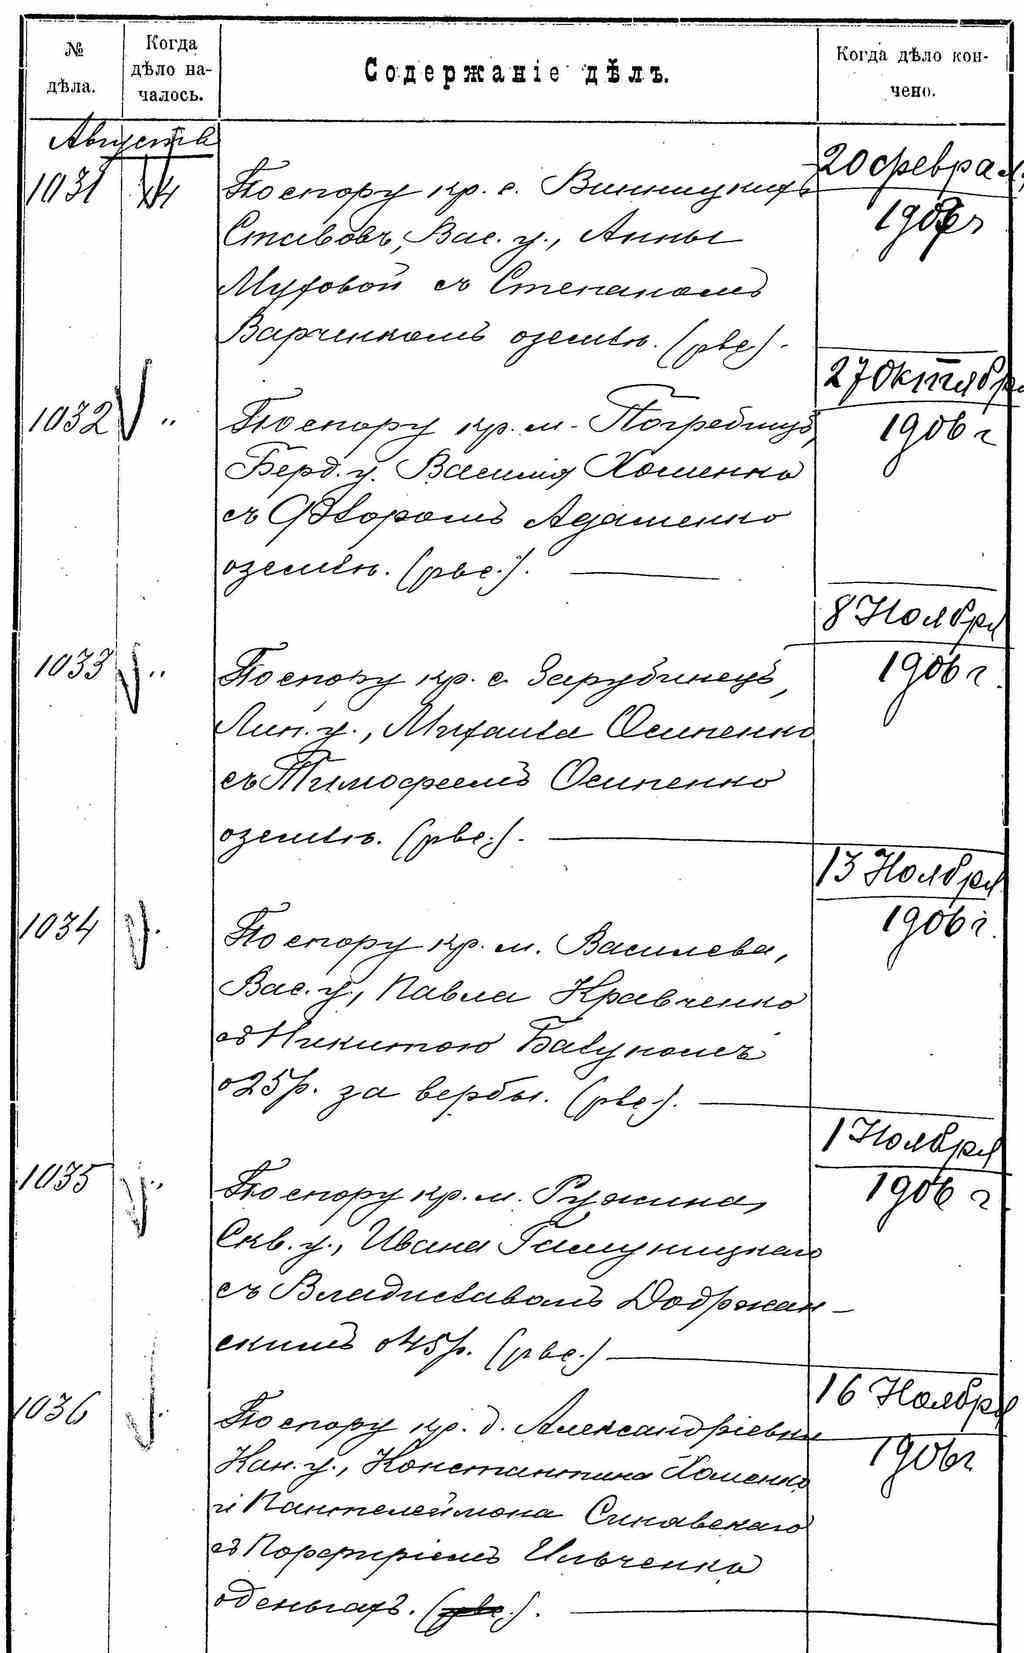 № дѣла.
Когда дѣло на-чалось.
Содержаніе дѣлъ.
Когда дѣло кон-чено.
Августа
1031 14 По спору кр. с. Винницкихъ 20 феврал.
Ставовъ, Вас. у., Анны 190 г
Муховой съ Степаномъ
Варченкомъ о землѣ. (рвс).
1032 " По спору кр. м. Погребищъ, 27 Октября
Берд. у. Василія Хоменко 1906 г
съ Ѳедоромъ Адаменко
о землѣ. (рвс.).
1033 " По спору кр. с. Зарубинецъ, 8 Ноября
Лип. у., Михаила Осипенко 1906 г.
съ Тимофеемъ Осипенко
о землѣ. (рвс.).
1034 " По спору кр. м. Василева, 13 Ноября
Вас. у., Павла Кравченко 1906 г.
съ Никитою Бабукомъ
о 25 р. за вербы. (рвс.).
1035 " По спору кр. м. Ружина, 1 Ноября
Скв. у., Ивана 1906 г
съ Владиславомъ Додржан-
скимъ о 45 р. (рвс.)
1036 " По спору кр. д. Александріевки 16 Ноября
Кан. у., Константина Хоменко 1906 г
и Пантелеймона Синявскаго
съ Порфиріемъ Ильченко
о деньгахъ. (рвс.).